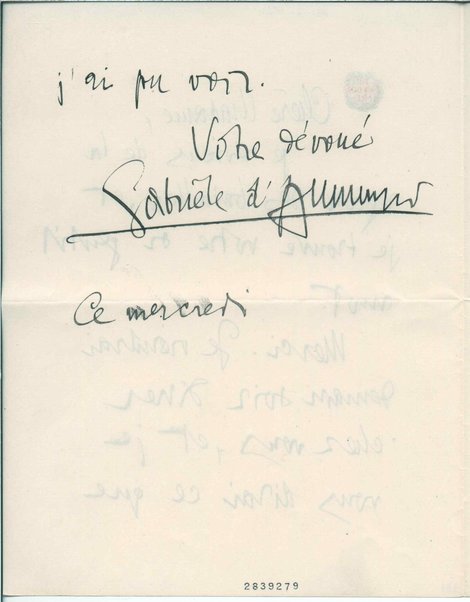 j'ai pu voir.
Votre dévoué
Gabriele d'Annunzio
Ce mercredi
2839279